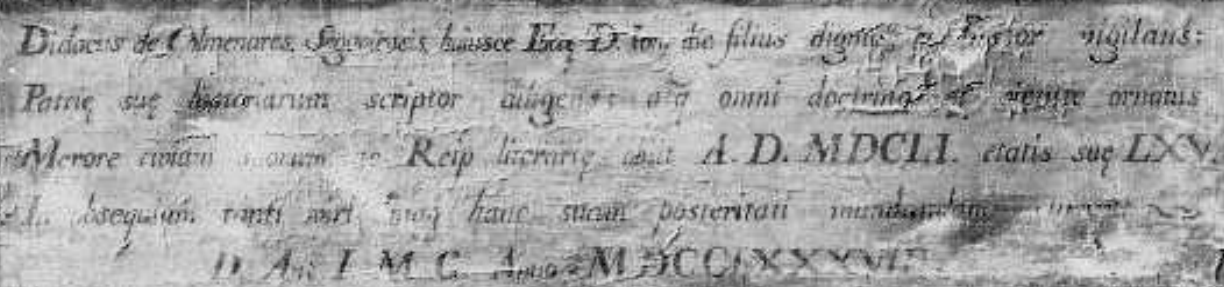 Didacus de Colmenares, Segoviensis, huiusce Ecq D. Ion, filius dignus et Pastor vigilans:
Patrię suę historiarum scriptor diligens atq omni doctrina et virtute ornatus
Merore civium suorum ac Reip literarię obiit A. D. MDCLI. etatis suę LXV.
obsequium tanti viri imaq hanc suam posteritati
D. An. I. M. C. Anno MDCCLXXXVII